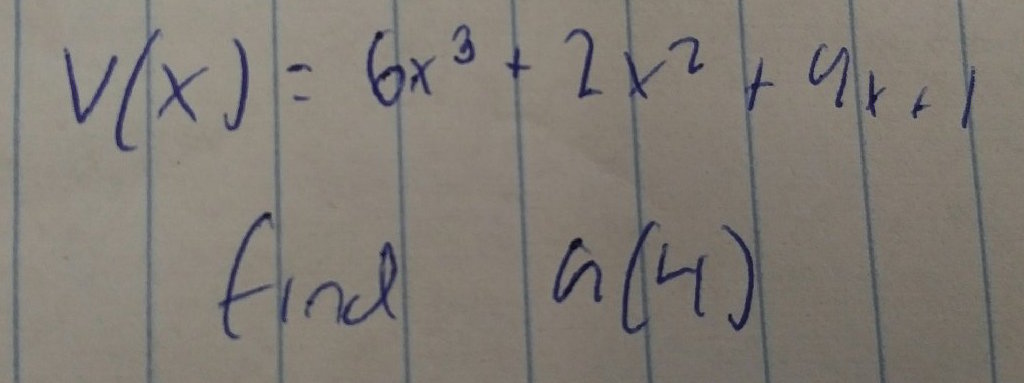 V(x) = 6x³ + 2x² + 4x + 1
find a(4)